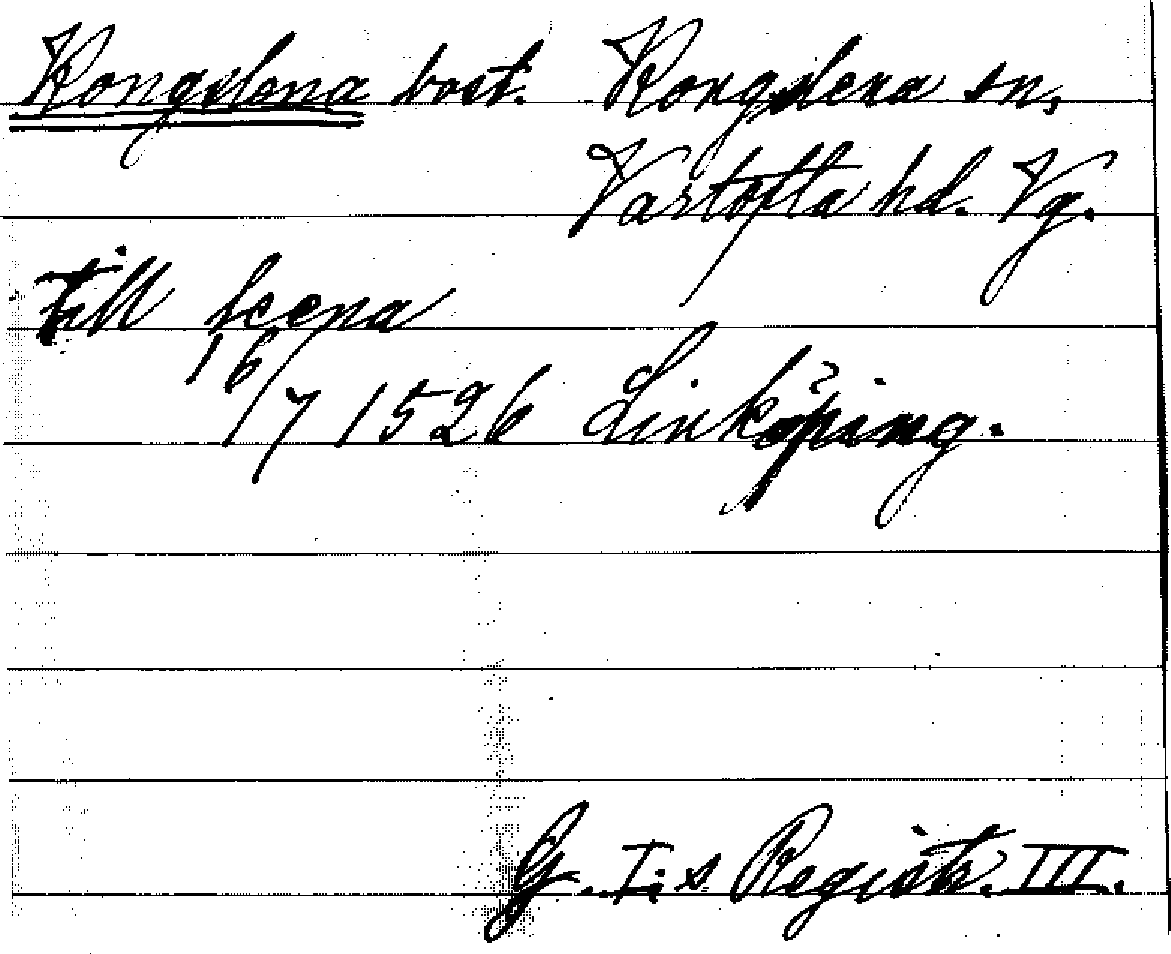 Kongslena bost. Kongslena sn,
Vartofta hd. Vg.
Till leena
16/7 1526 Linköping.
G. I:s Registr. III.